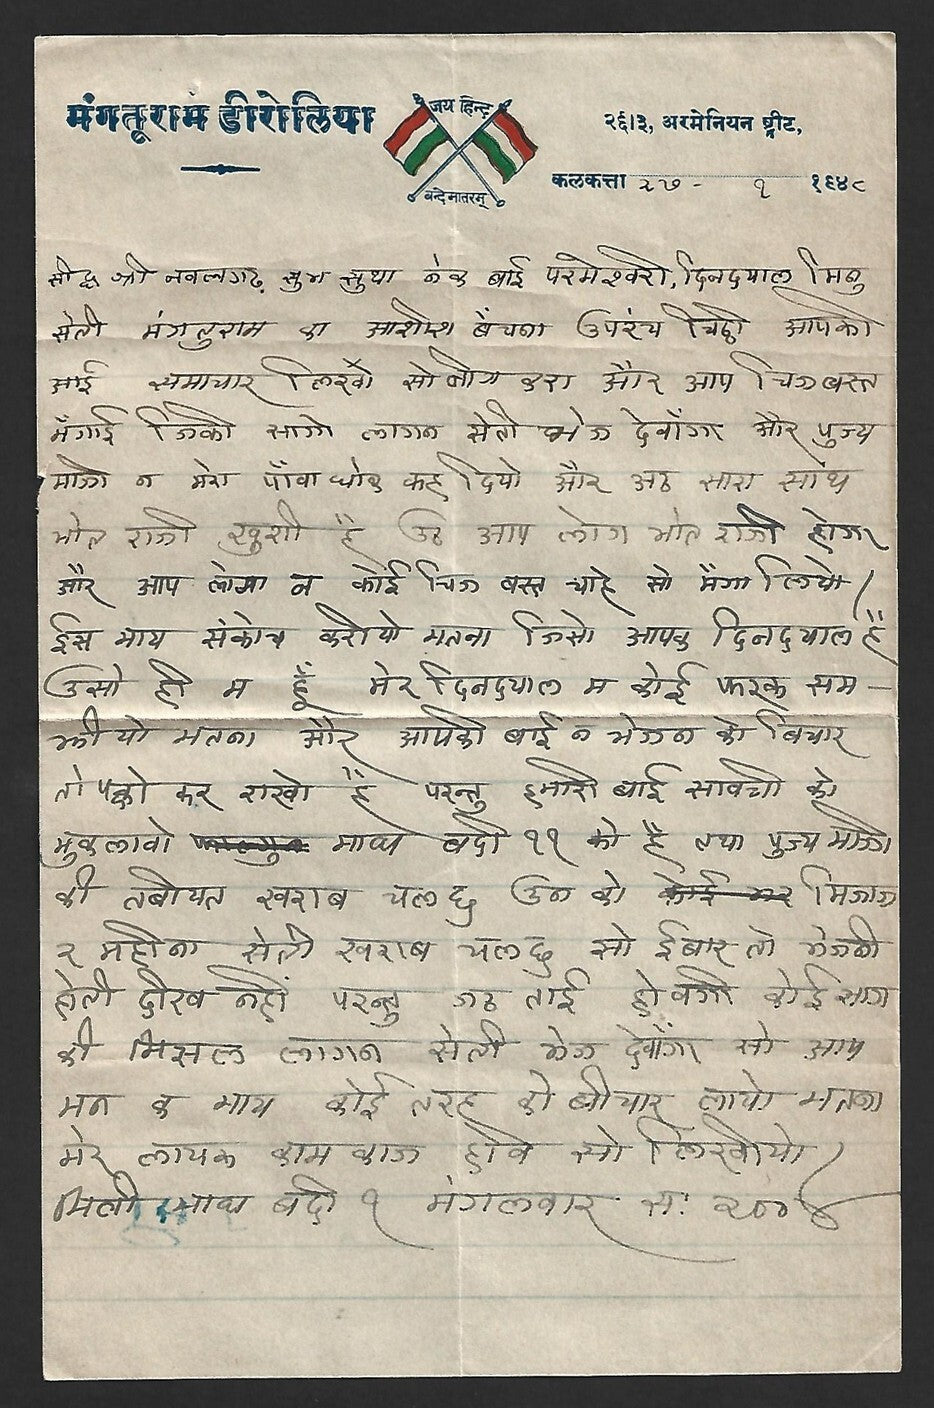 मंगतूराम डीरोलिया
जय हिन्द
वन्देमातरम्
२६।३, अरमेनियन ष्ट्रीट,
कलकत्ता २७ - १ १९४८
सीद्ध श्री नवलगढ़ सुभ सुथा नेक बाई परमेश्वरी, दिनदयाल मिनु
सेती मंगतुराम का आशीश बंचना उपरंच चिठी आपकी
आई समाचार लिखी सो करा और आप चिज बस्त
मँगाई जिकी सागे लागन सेती भेज देवाँगा और पुज्य
माजी न मेरा पाँवा धोक कह दियो और अठ सारा साथ
भोत राजी खुशी है उठ आप लोग भोत राजी होगा
और आप लोगा न कोई चिज बस्त चाहे सो मँगा लियो/
ईस माय संकोच करीयो मतना जिसो आपक दिनदयाल है
उसो ही म हूँ मेर दिनदयाल म कोई फरक सम-
झीयो मतना और आपकी बाई न भेजन को विचार
तो पक्को कर राखो है परन्तु हमारी बाई सावत्री को
मुकलावो माघ बदी ११ को है तथा पुज्य माजी
की तबीयत खराब चल छ उन को मिजाज
२ महीना सेती खराब चल छ सो ईबार तो भेजनी
होती दीख नहीं परन्तु जठ ताई होवगी कोई साग
की मिसल लागन सेती भेज देवाँगा सो आप
मन क माय कोई तरह को बीचार लायो मतना
मेर लायक काम काज होव सो लिखीयो/
मिती माघ बदी १ मंगलवार स: २००४